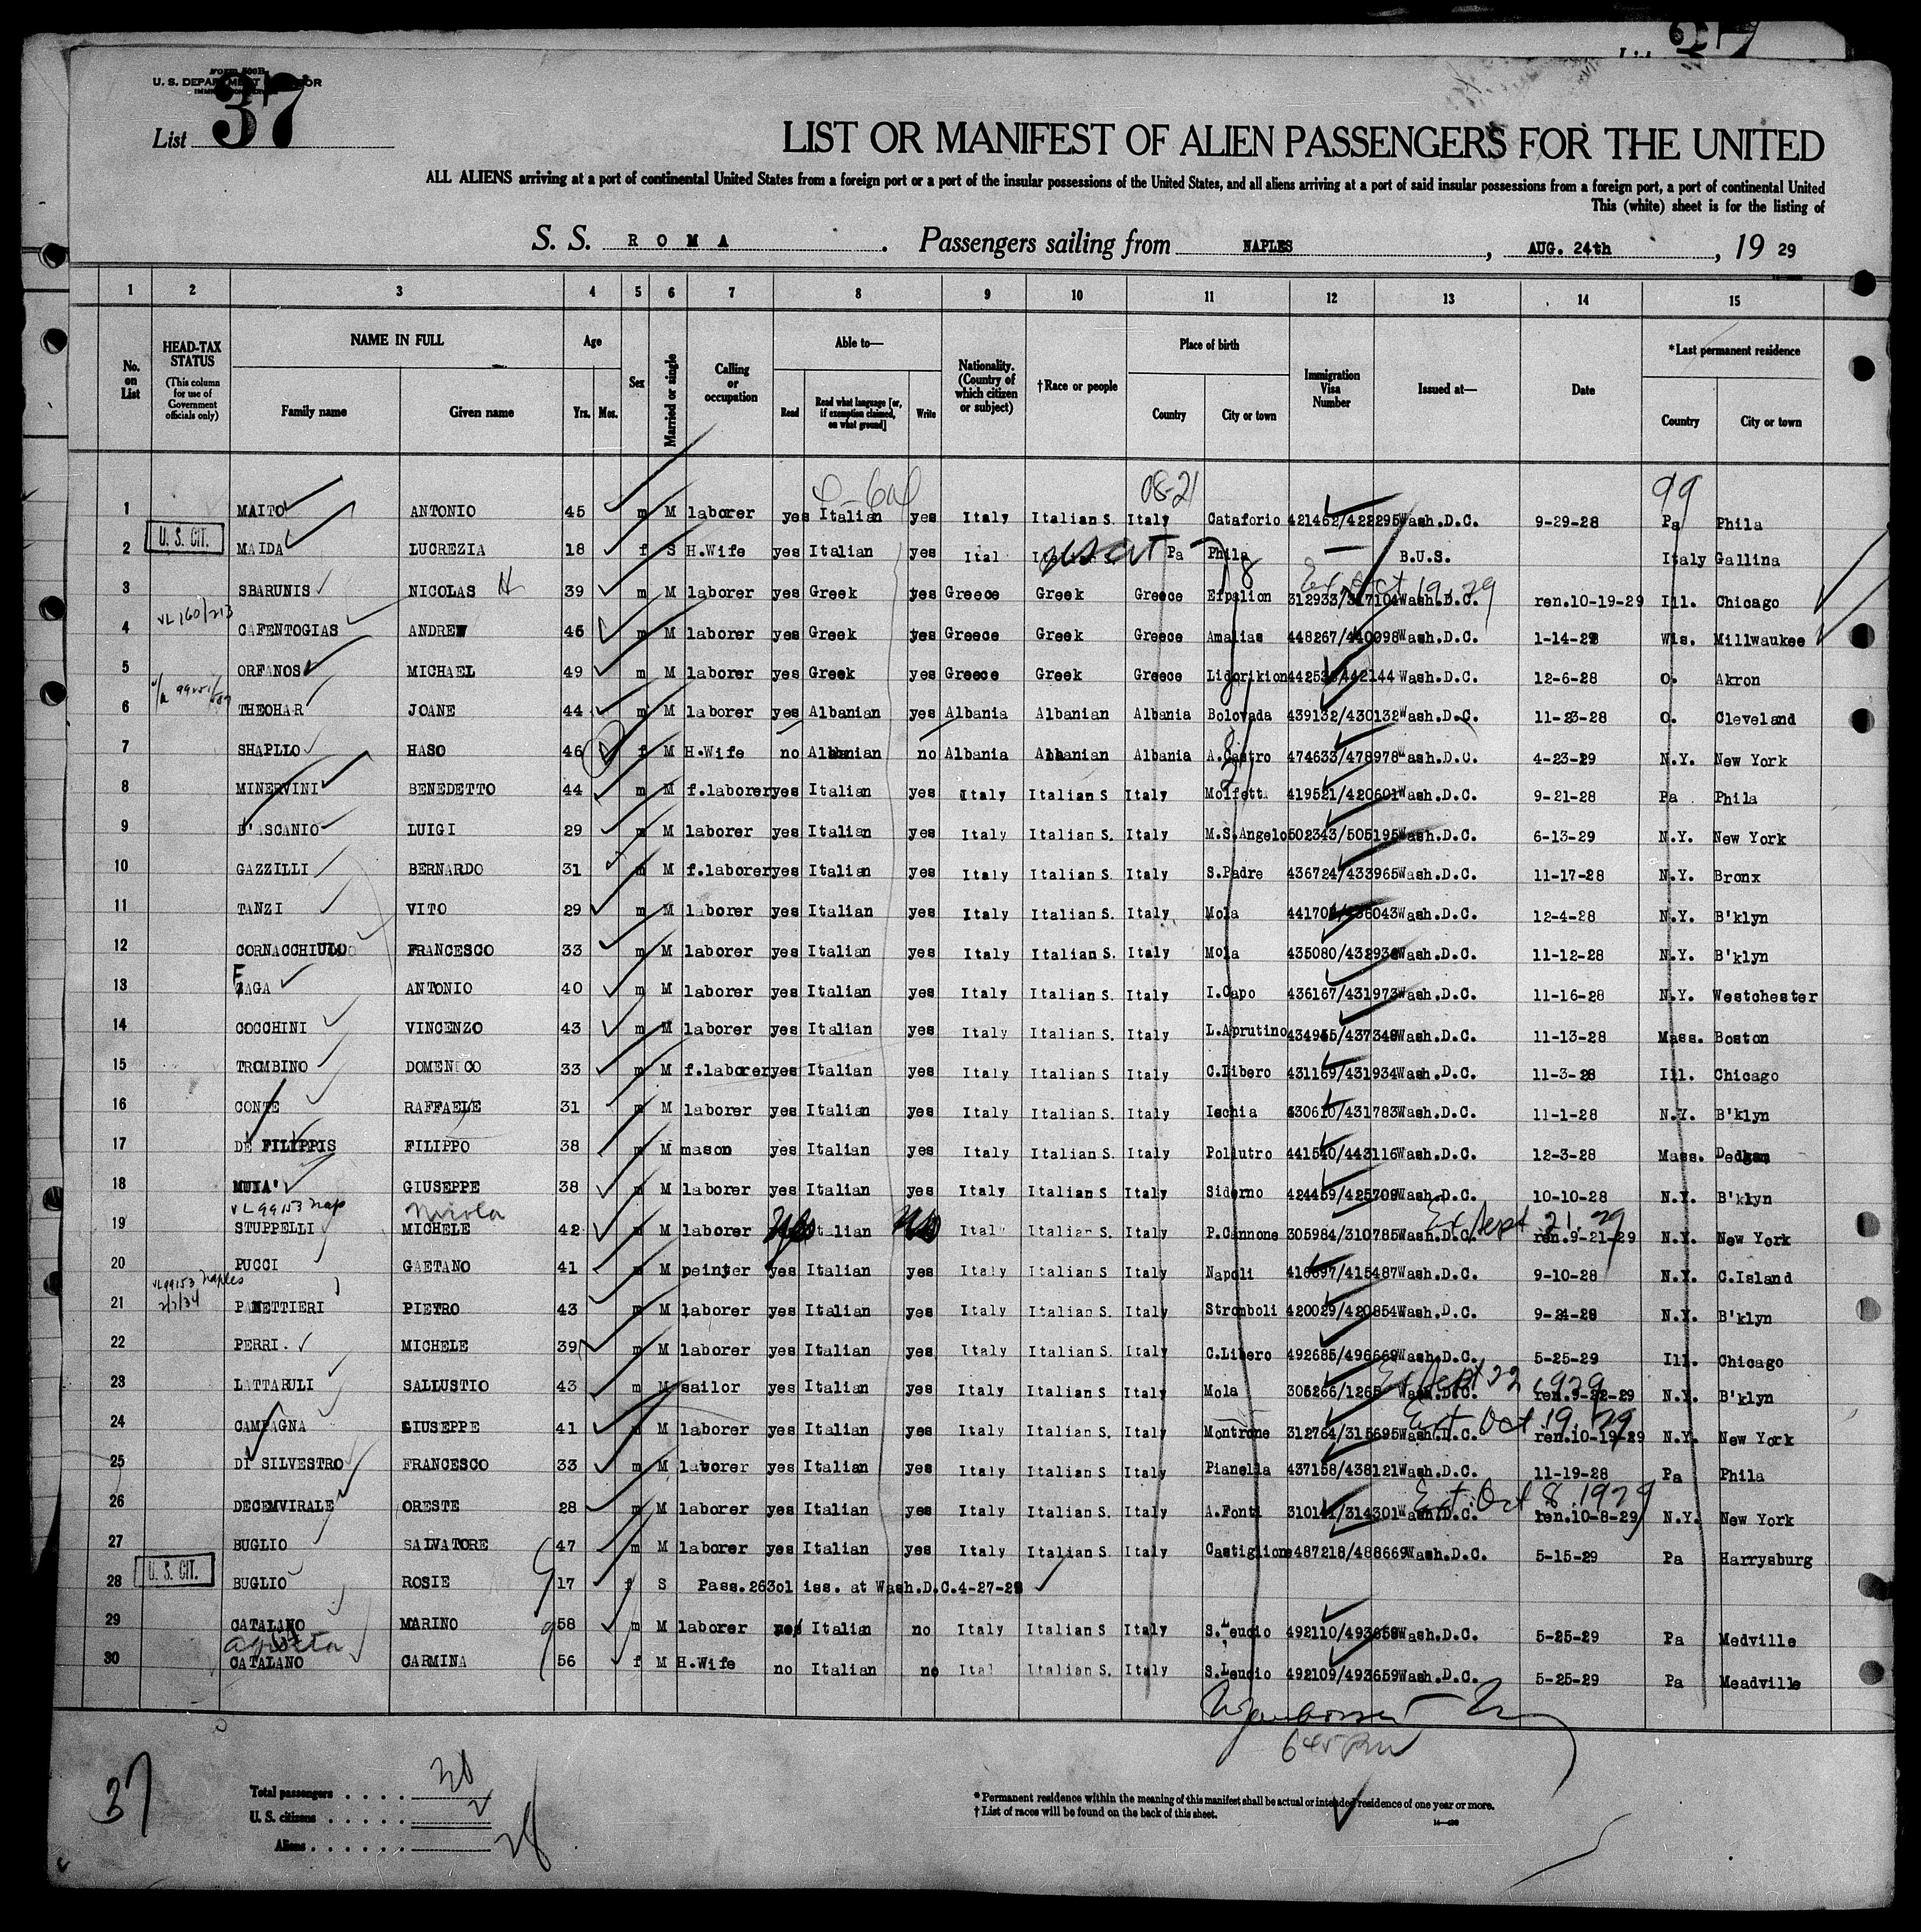 Form 500B
U. S. DEPARTMENT LABOR
List 37
LIST OR MANIFEST OF ALIEN PASSENGERS FOR THE UNITED
ALL ALIENS arriving at a port of continental United States from a foreign port or a port of the insular possessions of the United States, and all aliens arriving at a port of said insular possessions from a foreign port, a port of continental United
This (white) sheet is for the listing of
S. S. ROMA. Passengers sailing from NAPLES, AUG. 24th, 19 29
1 2 3 4 5 6 7 8 9 10 11 12 13 14 15
No. on List
HEAD-TAX STATUS (This column for use of Government officials only)
NAME IN FULL Family name Given name
Age Yrs. Mos.
Sex
Married or single
Calling or occupation
Able to— Read Read what language [or, if exemption claimed, on what ground] Write
Nationality. (Country of which citizen or subject)
†Race or people
Place of birth Country City or town
Immigration Visa Number
Issued at—
Date
*Last permanent residence Country City or town
08-21 99
1 MAITO ANTONIO 45 m M laborer yes Italian yes Italy Italian S. Italy Cataforio 421462/422295 Wash.D.C. 9-29-28 Pa Phila
U. S. CIT.
2 MAIDA LUCREZIA 18 f S H.Wife yes Italian yes Ital Pa Phila B.U.S. Italy Gallina
3 SBARUNIS NICOLAS H 39 m M laborer yes Greek yes Greece Greek Greece Efpalion 312933/317104 Wash.D.C. ren.10-19-29 Ill. Chicago
VL 160/213
4 CAFENTOGIAS ANDREW 46 m M laborer yes Greek yes Greece Greek Greece Amalias 448267/440098 Wash.D.C. 1-14-29 Wis. Millwaukee
5 ORFANOS MICHAEL 49 m M laborer yes Greek yes Greece Greek Greece Lidorikion Wash.D.C. 12-6-28 O. Akron
6 THEOHAR JOANE 44 m M laborer yes Albanian yes Albania Albanian Albania Bolovada 439132/430132 Wash.D.C. 11-23-28 O. Cleveland
7 SHAPLLO HASO 46 f M H.Wife no Albanian no Albania Albanian Albania A.Castro 474633/478978 Wash.D.C. 4-23-29 N.Y. New York
8 MINERVINI BENEDETTO 44 m M f.laborer yes Italian yes Italy Italian S Italy Molfetta 419521/420601 Wash.D.C. 9-21-28 Pa Phila
9 D'ASCANIO LUIGI 29 m M laborer yes Italian yes Italy Italian S. Italy M.S.Angelo 502343/505195 Wash.D.C. 6-13-29 N.Y. New York
10 GAZZILLI BERNARDO 31 m M f.laborer yes Italian yes Italy Italian S. Italy S.Padre 436724/433965 Wash.D.C. 11-17-28 N.Y. Bronx
11 TANZI VITO 29 m M laborer yes Italian yes Italy Italian S. Italy Mola Wash.D.C. 12-4-28 N.Y. B'klyn
12 CORNACCHIULO FRANCESCO 33 m M laborer yes Italian yes Italy Italian S. Italy Mola 435080/432936 Wash.D.C. 11-12-28 N.Y. B'klyn
13 FAGA ANTONIO 40 m M laborer yes Italian yes Italy Italian S. Italy I.Capo 436167/431973 Wash.D.C. 11-16-28 N.Y. Westchester
14 COCCHINI VINCENZO 43 m M laborer yes Italian yes Italy Italian S. Italy L.Aprutino 434955/437348 Wash.D.C. 11-13-28 Mass. Boston
15 TROMBINO DOMENICO 33 m M f.laborer yes Italian yes Italy Italian S. Italy C.Libero 431169/431934 Wash.D.C. 11-3-28 Ill. Chicago
16 CONTE RAFFAELE 31 m M laborer yes Italian yes Italy Italian S. Italy Ischia 430610/431783 Wash.D.C. 11-1-28 N.Y. B'klyn
17 DE FILIPPIS FILIPPO 38 m M mason yes Italian yes Italy Italian S. Italy Pollutro 441540/443116 Wash.D.C. 12-3-28 Mass. Dedgam
18 MUIA' GIUSEPPE 38 m M laborer yes Italian yes Italy Italian S Italy Siderno 424459/425709 Wash.D.C. 10-10-28 N.Y. B'klyn
VL 99153 nap Nicola Ext Sept 21.29
19 STUPPELLI MICHELE 42 m M laborer Italian Italy Italian S. Italy P.Cannone 305984/310785 Wash.D.C. ren.9-21-29 N.Y. New York
20 PUCCI GAETANO 41 m M peinter yes Italian yes Italy Italian S Italy Napoli 416697/415487 Wash.D.C. 9-10-28 N.Y. C.Island
VL99153 Naples 2/7/34
21 PANETTIERI PIETRO 43 m M laborer yes Italian yes Italy Italian S Italy Stromboli 420029/420854 Wash.D.C. 9-24-28 N.Y. B'klyn
22 PERRI. MICHELE 39 m M laborer yes Italian yes Italy Italian S. Italy C.Libero 492685/496669 Wash.D.C. 5-25-29 Ill. Chicago
Ext Sept 22 1929
23 LATTARULI SALLUSTIO 43 m M sailor yes Italian yes Italy Italian S. Italy Mola Wash.D.C. ren.9-22-29 N.Y. B'klyn
Ext Oct 19.29
24 CAMPAGNA GIUSEPPE 41 m M laborer yes Italian yes Italy Italian S. Italy Montrone 312764/315695 Wash.D.C. ren.10-19-29 N.Y. New York
25 DI SILVESTRO FRANCESCO 33 m M laborer yes Italian yes Italy Italian S. Italy Pianella 437158/438121 Wash.D.C. 11-19-28 Pa Phila
Ext. Oct 8.1929
26 DECEMVIRALE ORESTE 28 m M laborer yes Italian yes Italy Italian S. Italy A.Fonti 310141/314301 Wash.D.C. ren.10-8-29 N.Y. New York
27 BUGLIO SALVATORE 47 m M laborer yes Italian yes Italy Italian S. Italy Castiglione 487218/488669 Wash.D.C. 5-15-29 Pa Harrysburg
U. S. CIT.
28 BUGLIO ROSIE 17 f S Pass.26301 iss. at Wash.D.C.4-27-29
29 CATALANO MARINO 58 m M laborer Italian no Italy Italian S Italy S.Leucio 492110/493659 Wash.D.C. 5-25-29 Pa Medville
30 CATALANO CARMINA 56 f M H.Wife no Italian no Ital Italian S. Italy S.Leucio 492109/493659 Wash.D.C. 5-25-29 Pa Meadville
37
Total passengers 30
U. S. citizens 2
Aliens 28
* Permanent residence within the meaning of this manifest shall be actual or intended residence of one year or more.
† List of races will be found on the back of this sheet.